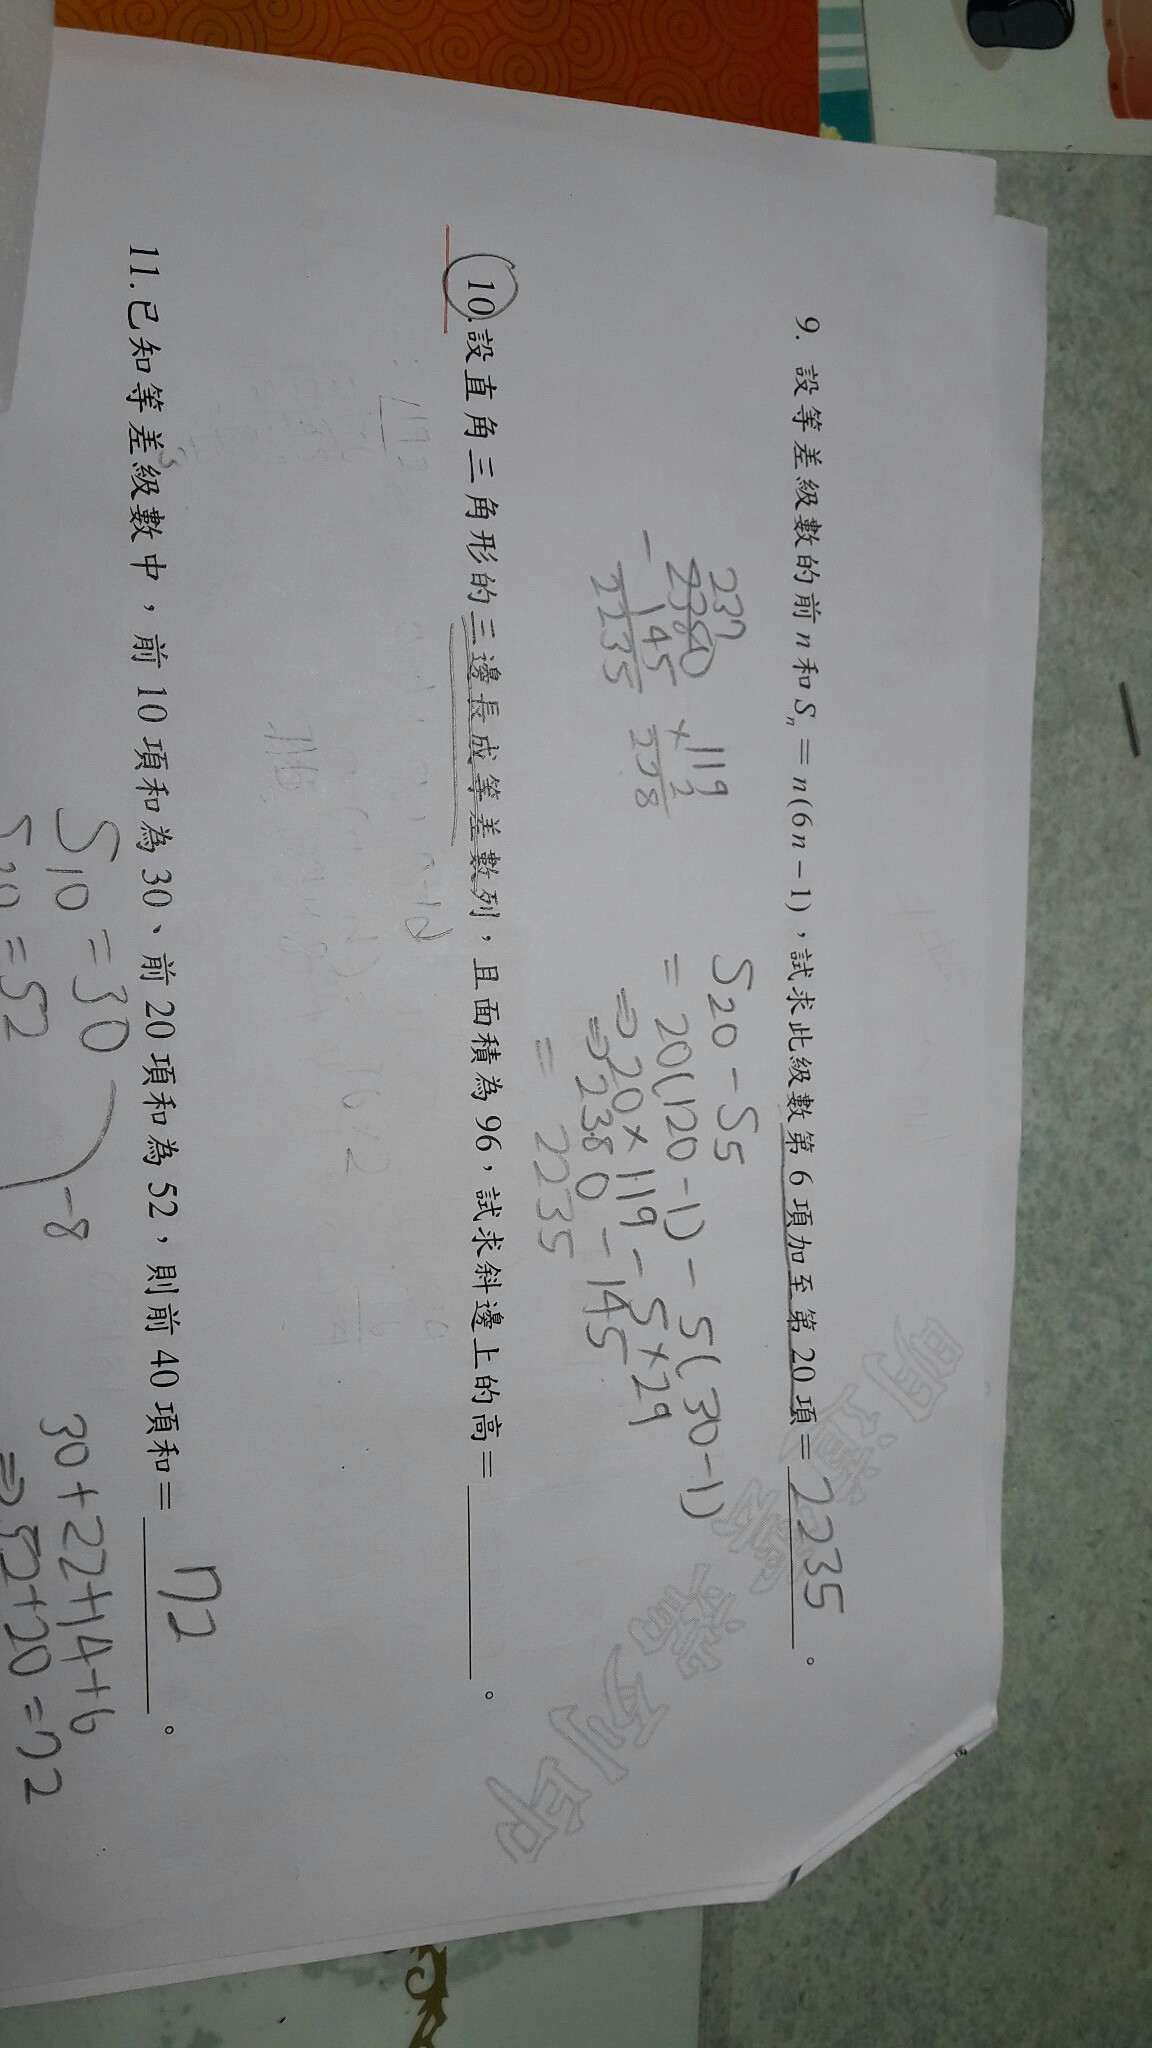 9. 設等差級數的前n和Sn=n(6n-1),試求此級數第6項加至第20項=2235。
S20-S5
=20(120-1)-5(30-1)
⇒20×119-5×29
⇒2380-145
=2235
237
2380
-145
2235
119
×2
238
10.設直角三角形的三邊長成等差數列,且面積為96,試求斜邊上的高=______。
11.已知等差級數中,前10項和為30、前20項和為52,則前40項和=72。
S10=30
S20=52
-8
30+22+14+6
⇒52+20=72